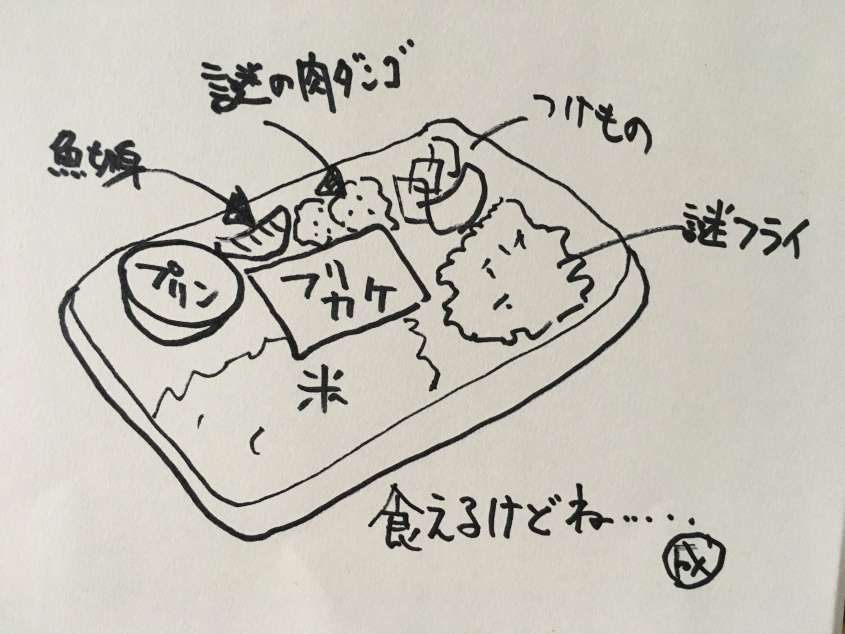 謎の肉ダンゴ
つけもの
謎フライ
プリン
フリカケ
米
食えるけどね……